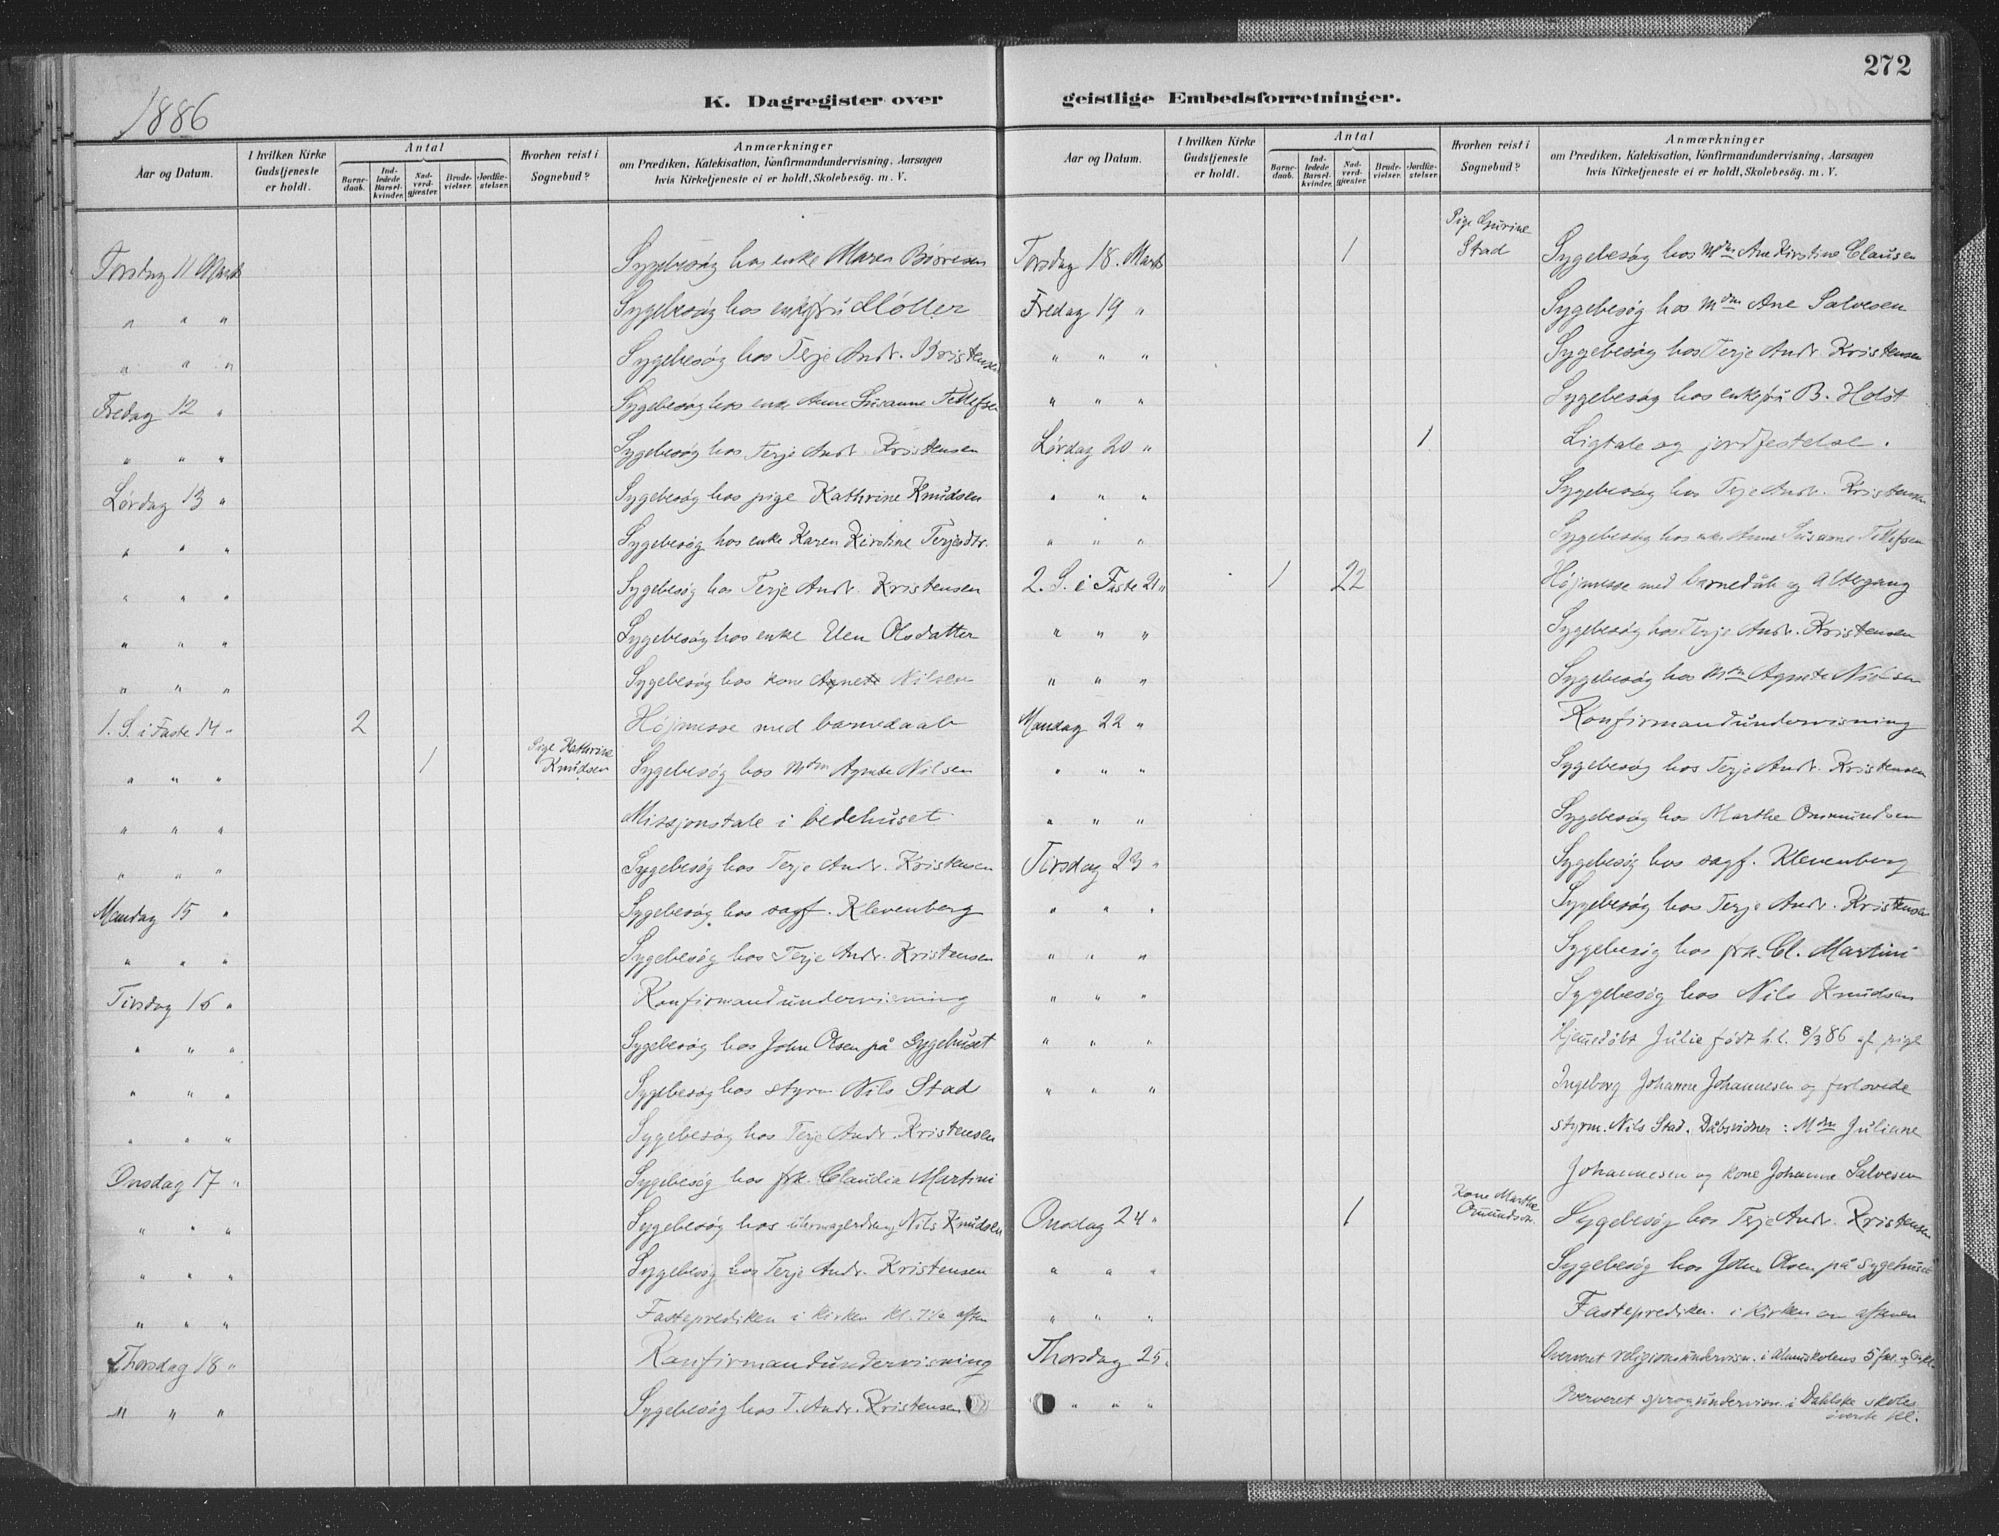 272
1886
K. Dagregister over
geistlige Embedsforretninger.
Aar og Datum.
I hvilken Kirke Gudstjeneste er holdt.
Antal
Barne-daab.
Ind-ledede Barsel-kvinder.
Nad-verd-gjæster.
Brude-vielser.
Jordfæ-stelser.
Hvorhen reist i Sognebud?
Anmærkninger
om Prædiken, Katekisation, Konfirmandundervisning, Aarsagen
hvis Kirketjeneste ei er holdt, Skolebesög. m. V.
Torsdag 11 Marts Sygebesøg hos enke Maren Börresen
" " " Sygebesøg hos enkefru Møller
" " " Sygebesøg hos Terje Andr. Kristensen
Fredag 12 " Sygebesøg hos enke Anne Susanne Tellefsen
" " " Sygebesøg hos Terje Andr. Kristensen
Lørdag 13 " Sygebesøg hos pige Kathrine Knudsen
" " " Sygebesøg hos enke Karen Kirstine Terjesdtr.
" " " Sygebesøg hos Terje Andr. Kristensen
" " " Sygebesøg hos enke Olsdatter
" " " Sygebesøg hos kone Agnete Nilsen
1. S. i Faste 14 " 2 Højmesse med barnedaab
" " " 1 Pige Kathrine Knudsen Sygebesøg hos Mdm Agnete Nilsen
" " " Missjonstale i bedehuset
" " " Sygebesøg hos Terje Andr. Kristensen
Mandag 15 " Sygebesøg hos sagf. Klevenberg
" " " Sygebesøg hos Terje Andr. Kristensen
Tirsdag 16 " Konfirmandundervisning
" " " Sygebesøg hos John Olsen på Sygehuset
" " " Sygebesøg hos styrm Nils Stad
" " " Sygebesøg hos Terje Andr. Kristensen
Onsdag 17 " Sygebesøg hos frk. Claudia Martini
" " " Sygebesøg hos Nils Knudsen
" " " Sygebesøg hos Terje Andr. Kristensen
" " " Fasteprediken i kirken kl. 7½ aften
Thorsdag 18 " Konfirmandundervisning
" " " Sygebesøg hos T. Andr. Kristensen
Aar og Datum.
I hvilken Kirke Gudstjeneste er holdt.
Antal
Barne-daab.
Ind-ledede Barsel-kvinder.
Nad-verd-gjæster.
Brude-vielser.
Jordfæ-stelser.
Hvorhen reist i Sognebud?
Anmærkninger
om Prædiken, Katekisation, Konfirmandundervisning, Aarsagen
hvis Kirketjeneste ei er holdt, Skolebesög. m. V.
Torsdag 18. Marts 1 Pige Gurine Stad Sygebesøg hos Mdm Ane Kirstine Clausen
Fredag 19 " Sygebesøg hos Mdm Ane Salvesen
" " " Sygebesøg hos Terje Andr. Kristensen
" " " Sygebesøg hos enkefru B. Holst
Lørdag 20 " 1 Ligtale og jordfestelse.
" " " Sygebesøg hos Terje Andr. Kristensen
" " " Sygebesøg hos enke Anne Susanne Tellefsen
2. S. i Faste 21 " 1 22 Højmesse med barnedåb og altergang
" " " Sygebesøg hos Terje Andr. Kristensen
" " " Sygebesøg hos Mdm Agnete Nielsen
Mandag 22 " Konfirmandundervisning
" " " Sygebesøg hos Terje Andr. Kristensen
" " " Sygebesøg hos Marthe Ommundsen
Tirsdag 23 " Sygebesøg hos sagf. Klevenberg
" " " Sygebesøg hos Terje Andr. Kristensen
" " " Sygebesøg hos frk. Cl. Martini
" " " Sygebesøg hos Nils Knudsen
" " " Hjemedøbt Julie født h.l. 8/3 86 af pige
" " " Ingeborg Johanne Johannesen og forlovede
styrm. Nils Stad. Dåbsvidner: Mdm Juliane
Johannesen og kone Johanne Salvesen
Onsdag 24 " 1 Kone Marthe Omundsen. Sygebesøg hos Terje Andr. Kristensen
" " " Sygebesøg hos John Olsen på sygehuset
" " " Fasteprediken i kirken om aftenen
Thorsdag 25. Oververet religionsundervisn. i 5 fkl.
" " " Oververet sprogundervisn. i Dahlske skoles
øverste kl.